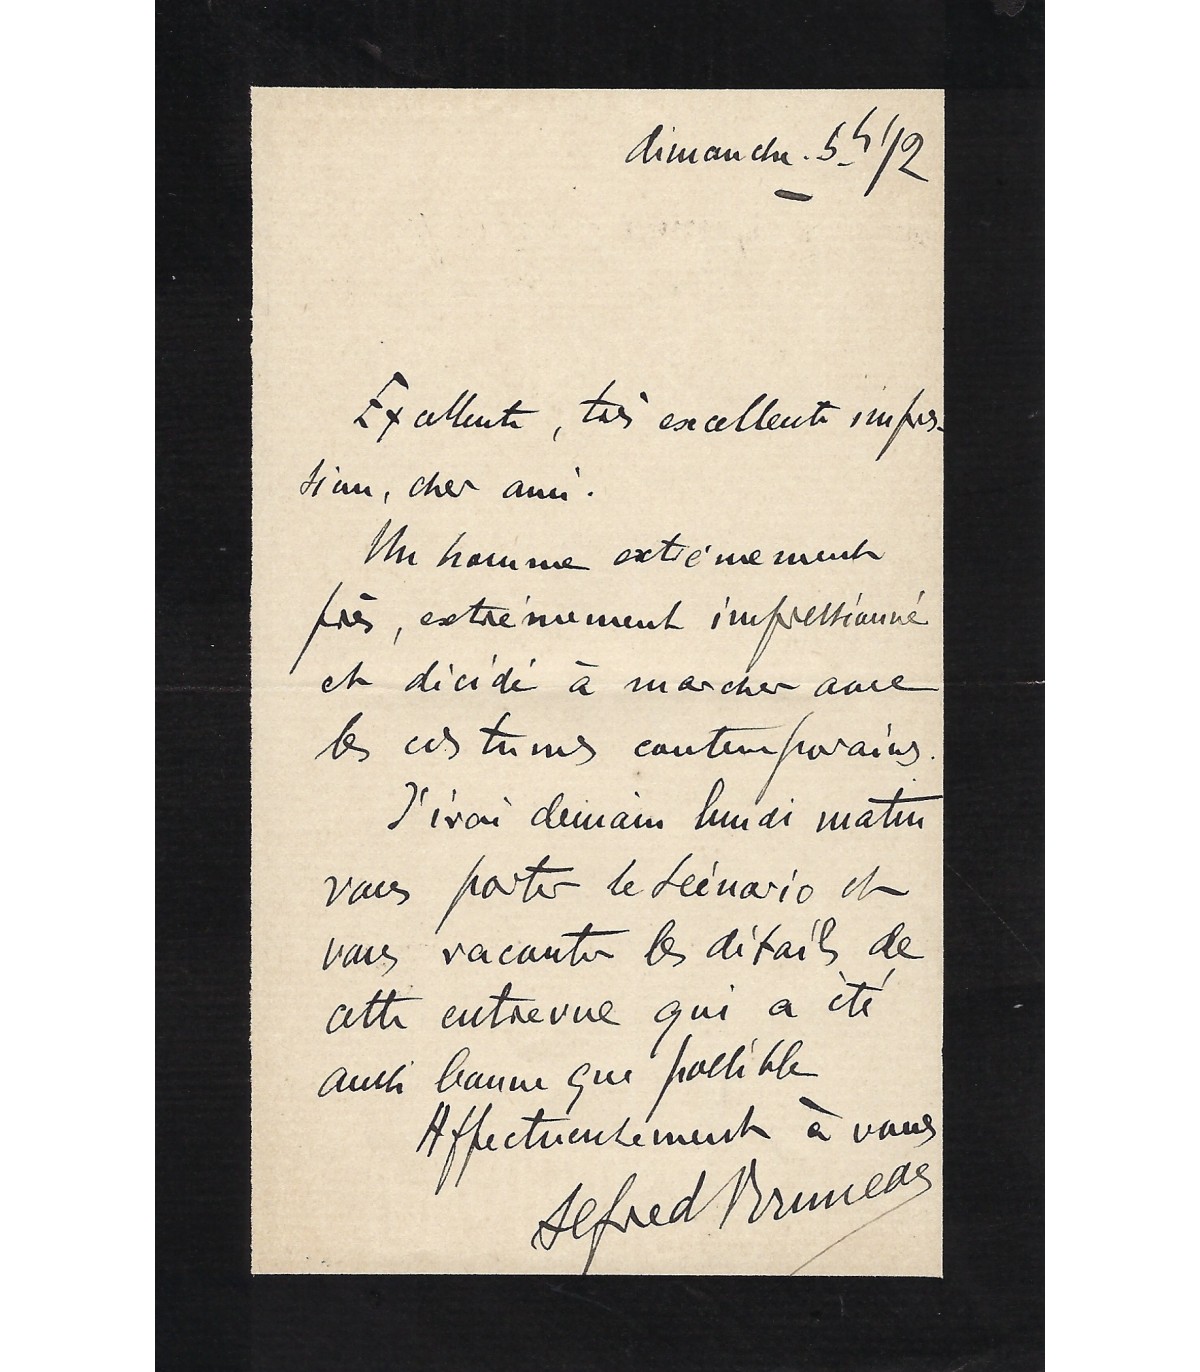 dimanche. 5h 1/2
Excellente, très excellente impres-
sion, cher ami.
Un homme extrêmement
pris, extrêmement impressionné
et décidé à marcher avec
les costumes contemporains.
J'irai demain lundi matin
vous porter le scénario et
vous raconter les détails de
cette entrevue qui a été
aussi bonne que possible
Affectueusement à vous
Alfred Bruneau